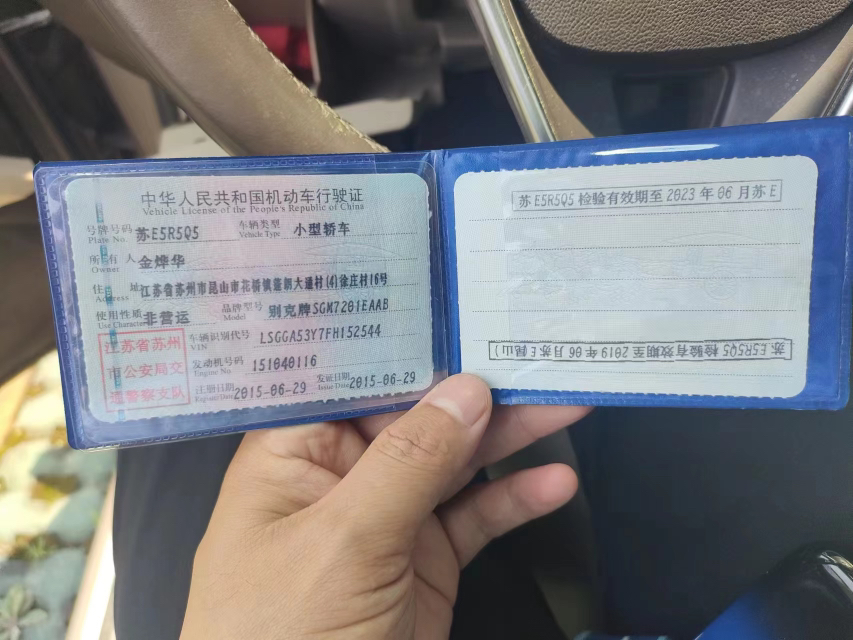 中华人民共和国机动车行驶证
Vehicle License of the People's Republic of China
号牌号码 苏E5R5Q5 车辆类型 小型轿车
Plate No. Vehicle Type
所有人 金烨华
Owner
住址 江苏省苏州市昆山市花桥镇蓬朗大通村(4)徐庄村16号
Address
使用性质 非营运 品牌型号 别克牌SGM7201EAAB
Use Character Model
江苏省苏州
市公安局交
通警察支队
车辆识别代号 LSGGA53Y7FH152544
VIN
发动机号码 151040116
Engine No.
注册日期 2015-06-29 发证日期 2015-06-29
Register Date Issue Date
苏E5R5Q5 检验有效期至 2023 年 06 月苏 E
苏E5R5Q5 检验有效期至 2019 年 06 月苏 E(昆山)